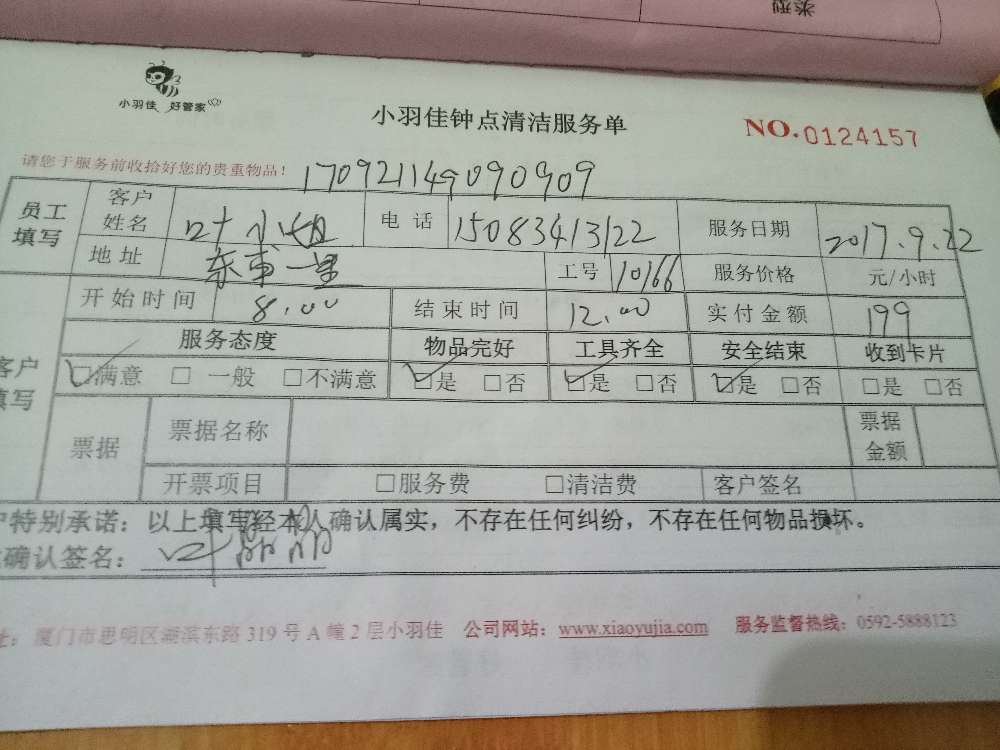 类型
小羽佳 好管家
小羽佳钟点清洁服务单
NO.0124157
请您于服务前收拾好您的贵重物品！
170921149090909
员工填写 客户姓名 叶小姐 电话 15083413122 服务日期 2017.9.22
地址 工号 10166 服务价格 元/小时
开始时间 8.00 结束时间 12.00 实付金额 199
服务态度 物品完好 工具齐全 安全结束 收到卡片
客户填写 □满意 □一般 □不满意 □是 □否 □是 □否 □是 □否 □是 □否
票据 票据名称 票据金额
开票项目 □服务费 □清洁费 客户签名
户特别承诺：以上填写经本人确认属实，不存在任何纠纷，不存在任何物品损坏。
确认签名：叶
址：厦门市思明区湖滨东路319号A幢2层小羽佳 公司网站：www.xiaoyujia.com 服务监督热线：0592-5888123